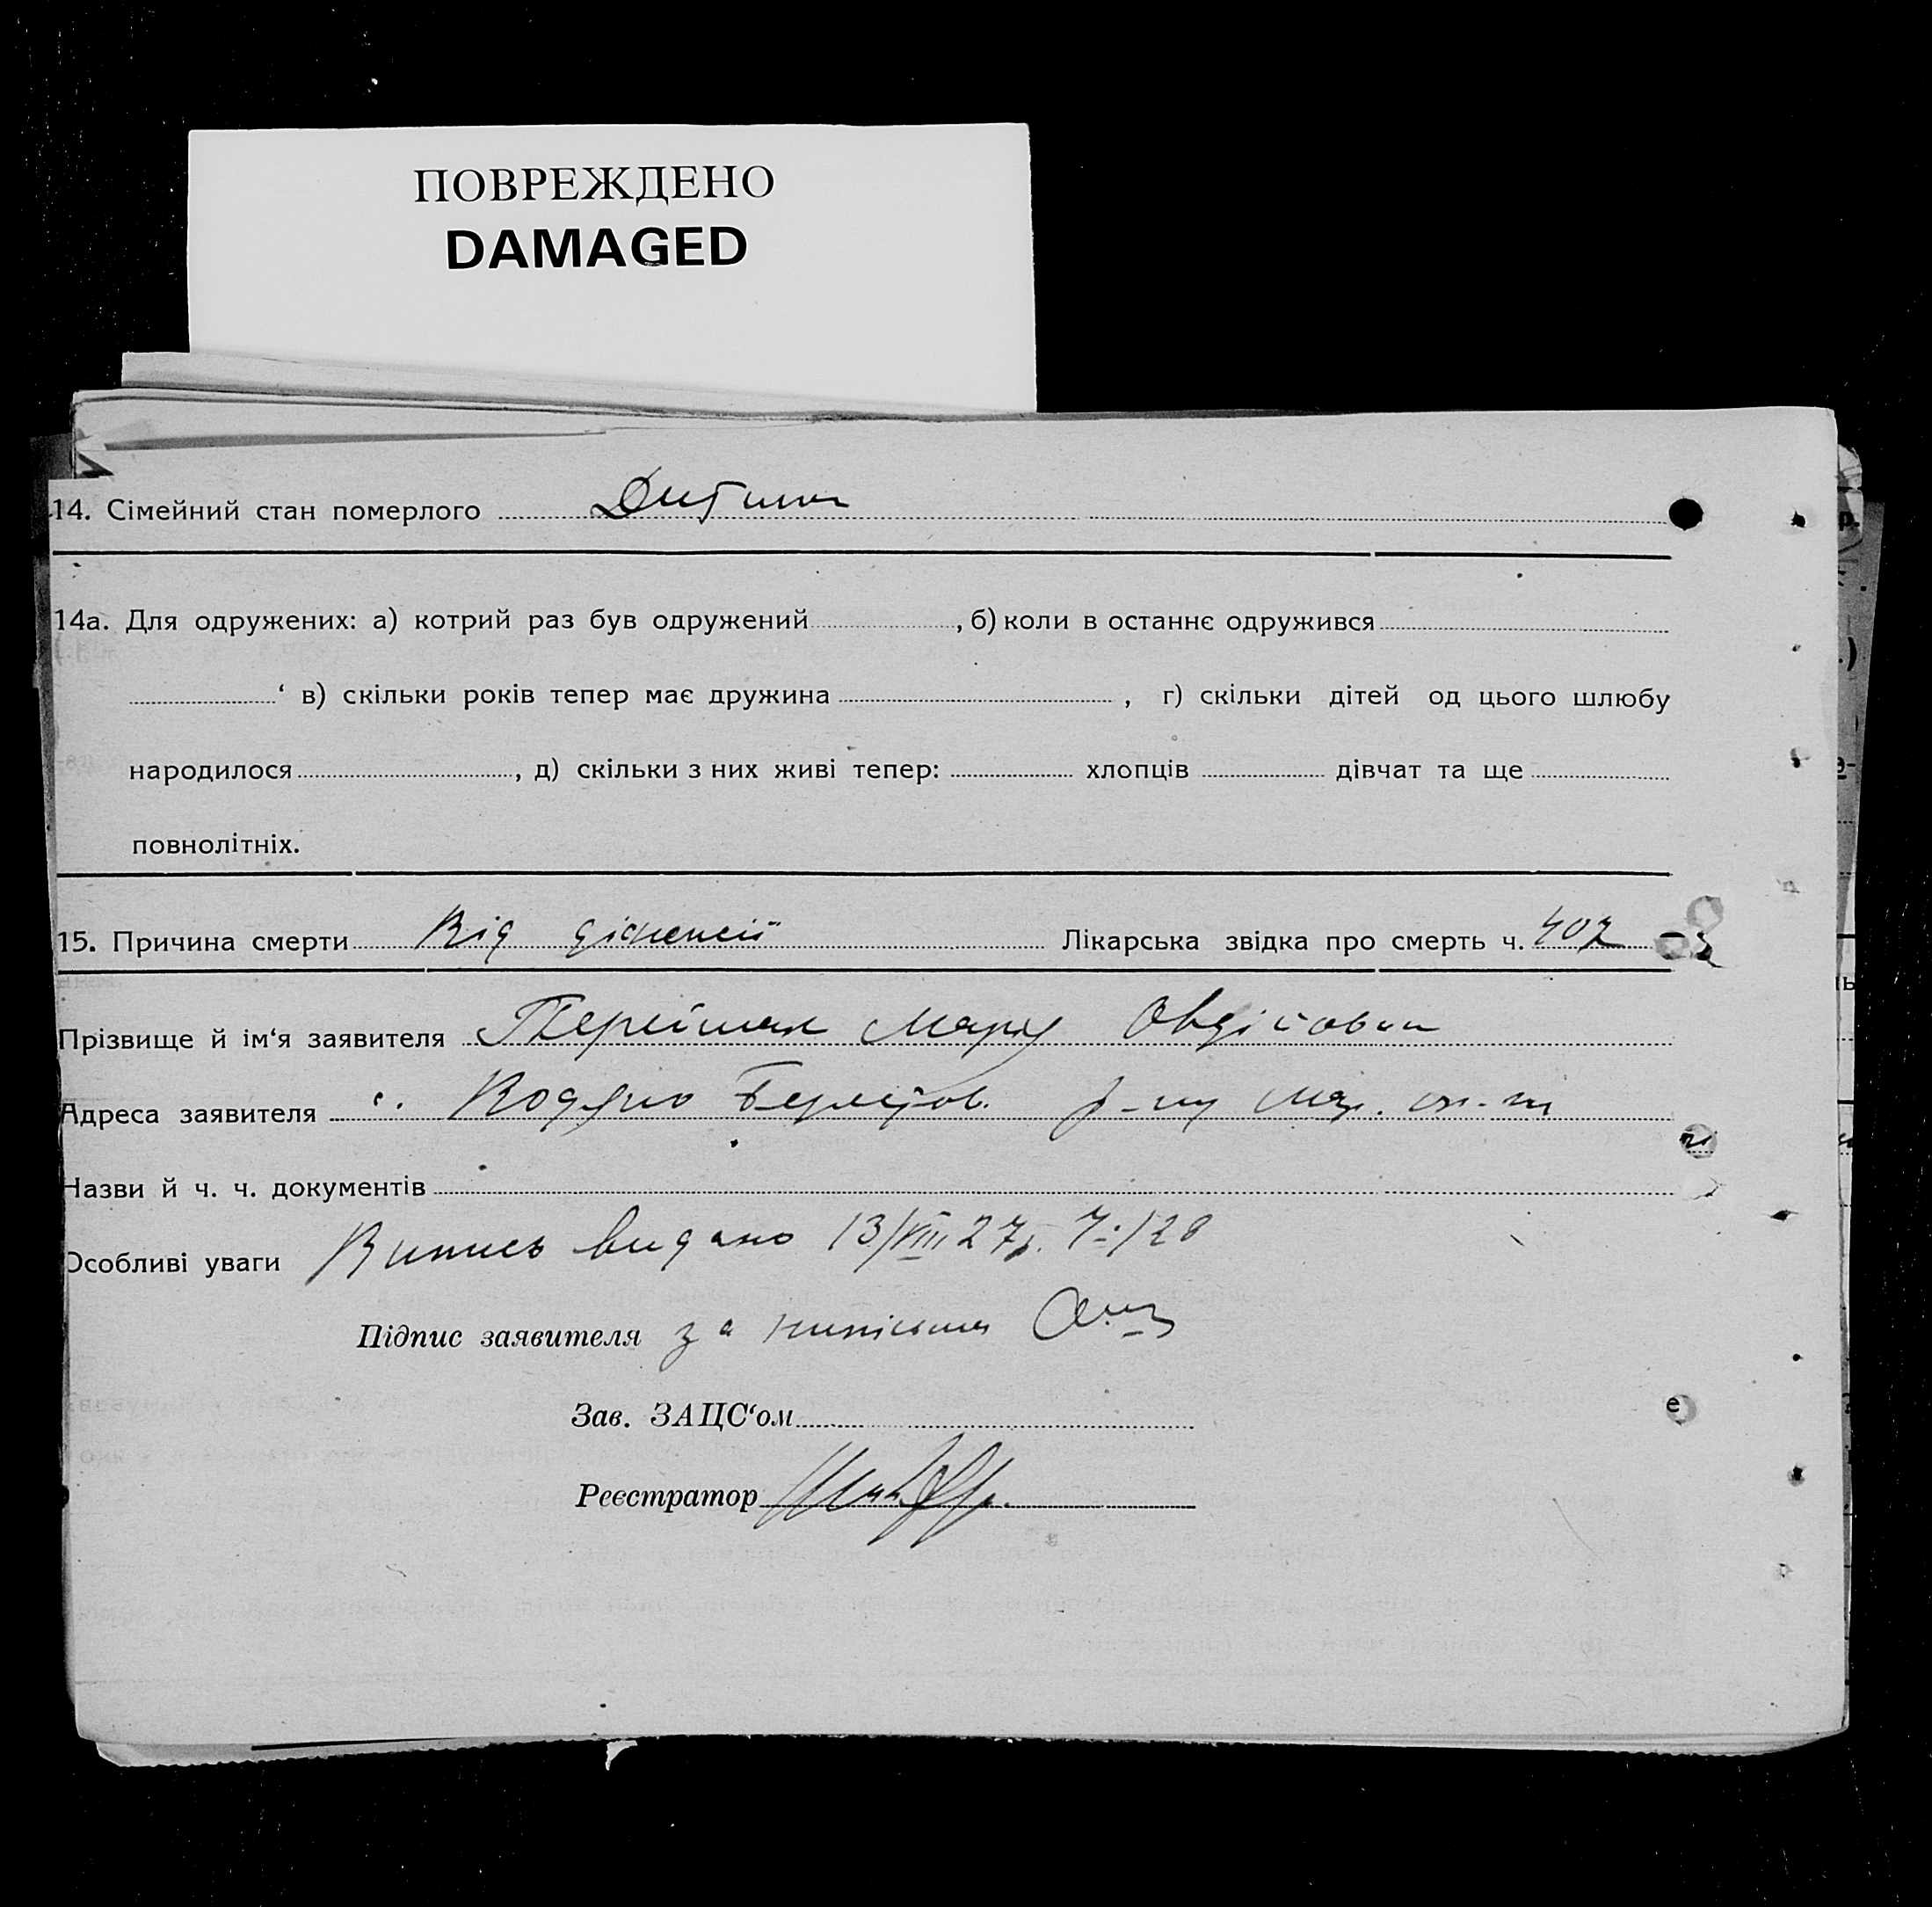 ПОВРЕЖДЕНО
DAMAGED
14. Сімейний стан померлого Дитина
14а. Для одружених: а) котрий раз був одружений , б) коли в останнє одружився
‘ в) скільки років тепер має дружина , г) скільки дітей од цього шлюбу
народилося , д) скільки з них живі тепер: хлопців дівчат та ще
повнолітніх.
15. Причина смерти Від Лікарська звідка про смерть ч. 407
Прізвище й ім‘я заявителя
Адреса заявителя с.
Назви й ч. ч. документів
Особливі уваги Випись видано 13/VIII 27р.
Підпис заявителя за
Зав. ЗАЦС‘ом
Реєстратор